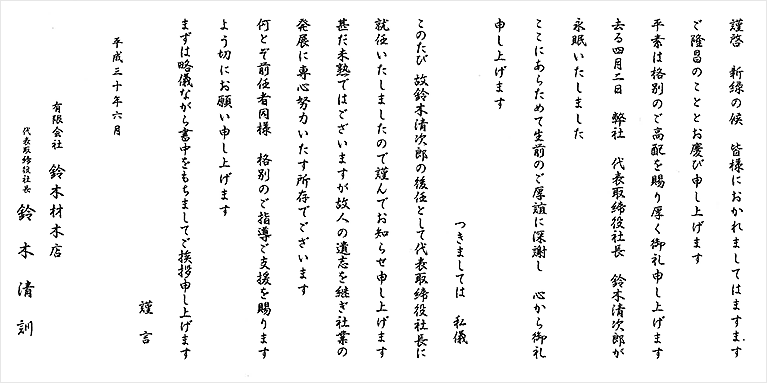 謹啓　新緑の候　皆様におかれましてはますます
ご隆昌のこととお慶び申し上げます
平素は格別のご高配を賜り厚く御礼申し上げます
去る四月二日　弊社　代表取締役社長　鈴木清次郎が
永眠いたしました
ここにあらためて生前のご厚誼に深謝し　心から御礼
申し上げます
つきましては　私儀
このたび　故鈴木清次郎の後任として代表取締役社長に
就任いたしましたので謹んでお知らせ申し上げます
甚だ未熟ではございますが故人の遺志を継ぎ社業の
発展に専心努力いたす所存でございます
何とぞ前任者同様　格別のご指導ご支援を賜ります
よう切にお願い申し上げます
まずは略儀ながら書中をもちましてご挨拶申し上げます
謹言
平成三十年六月
有限会社　鈴木材木店
代表取締役社長　鈴木清訓